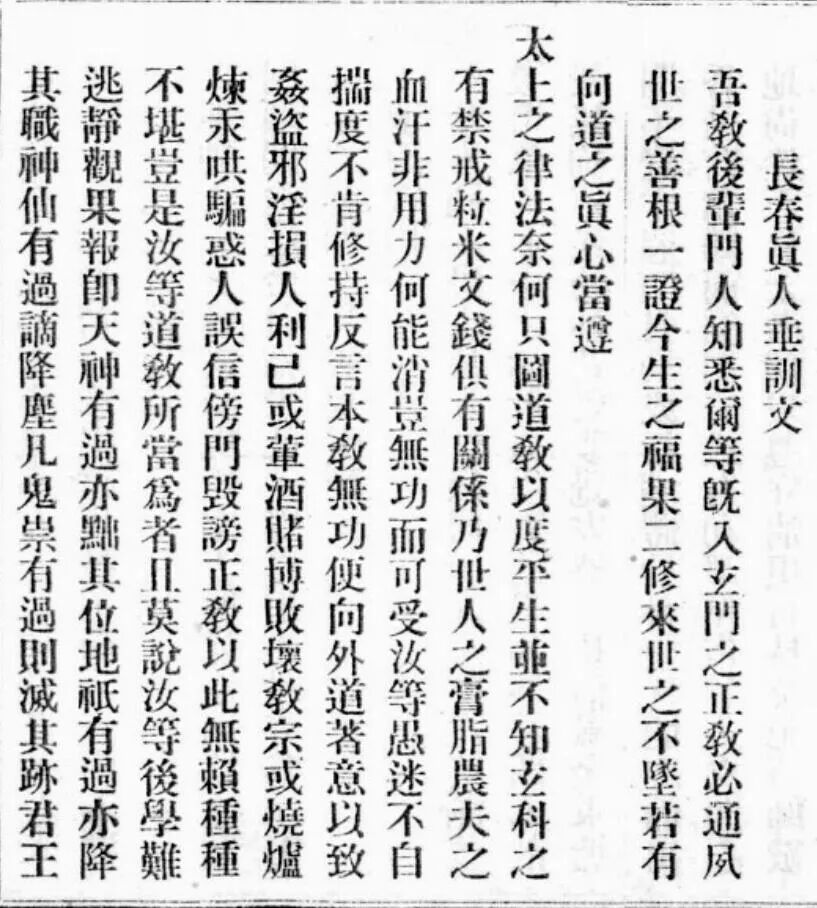 長春眞人垂訓文
吾敎後輩門人知悉爾等旣入玄門之正敎必通夙
世之善根一證今生之福果二修來世之不墜若有
向道之眞心當遵
太上之律法奈何只圖道敎以度平生並不知玄科之
有禁戒粒米文錢俱有關係乃世人之膏脂農夫之
血汗非用力何能消豈無功而可受汝等愚迷不自
揣度不肯修持反言本敎無功便向外道著意以致
姦盜邪淫損人利己或葷酒賭博敗壞敎宗或燒爐
煉汞哄騙惑人誤信傍門毀謗正敎以此無賴種種
不堪豈是汝等道敎所當爲者且莫說汝等後學難
逃靜觀果報卽天神有過亦黜其位地祇有過亦降
其職神仙有過謫降塵凡鬼祟有過則滅其跡君王